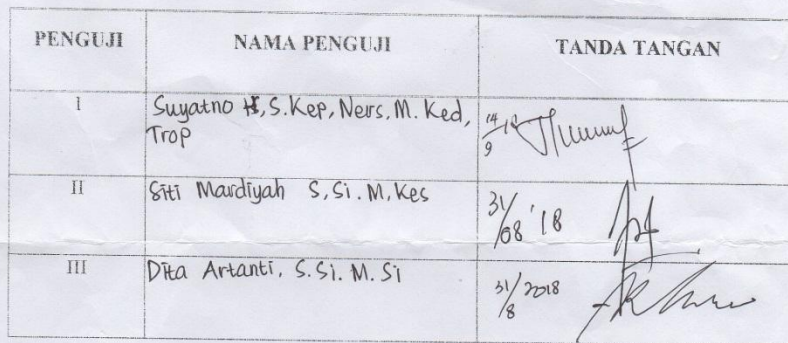 PENGUJI NAMA PENGUJI TANDA TANGAN
I Suyatno H, S.Kep, Ners, M. Ked, 14/9 18
Trop
II Siti Mardiyah S, Si. M, Kes 31/08 '18
III Dita Artanti, S. Si. M. Si 31/8 2018